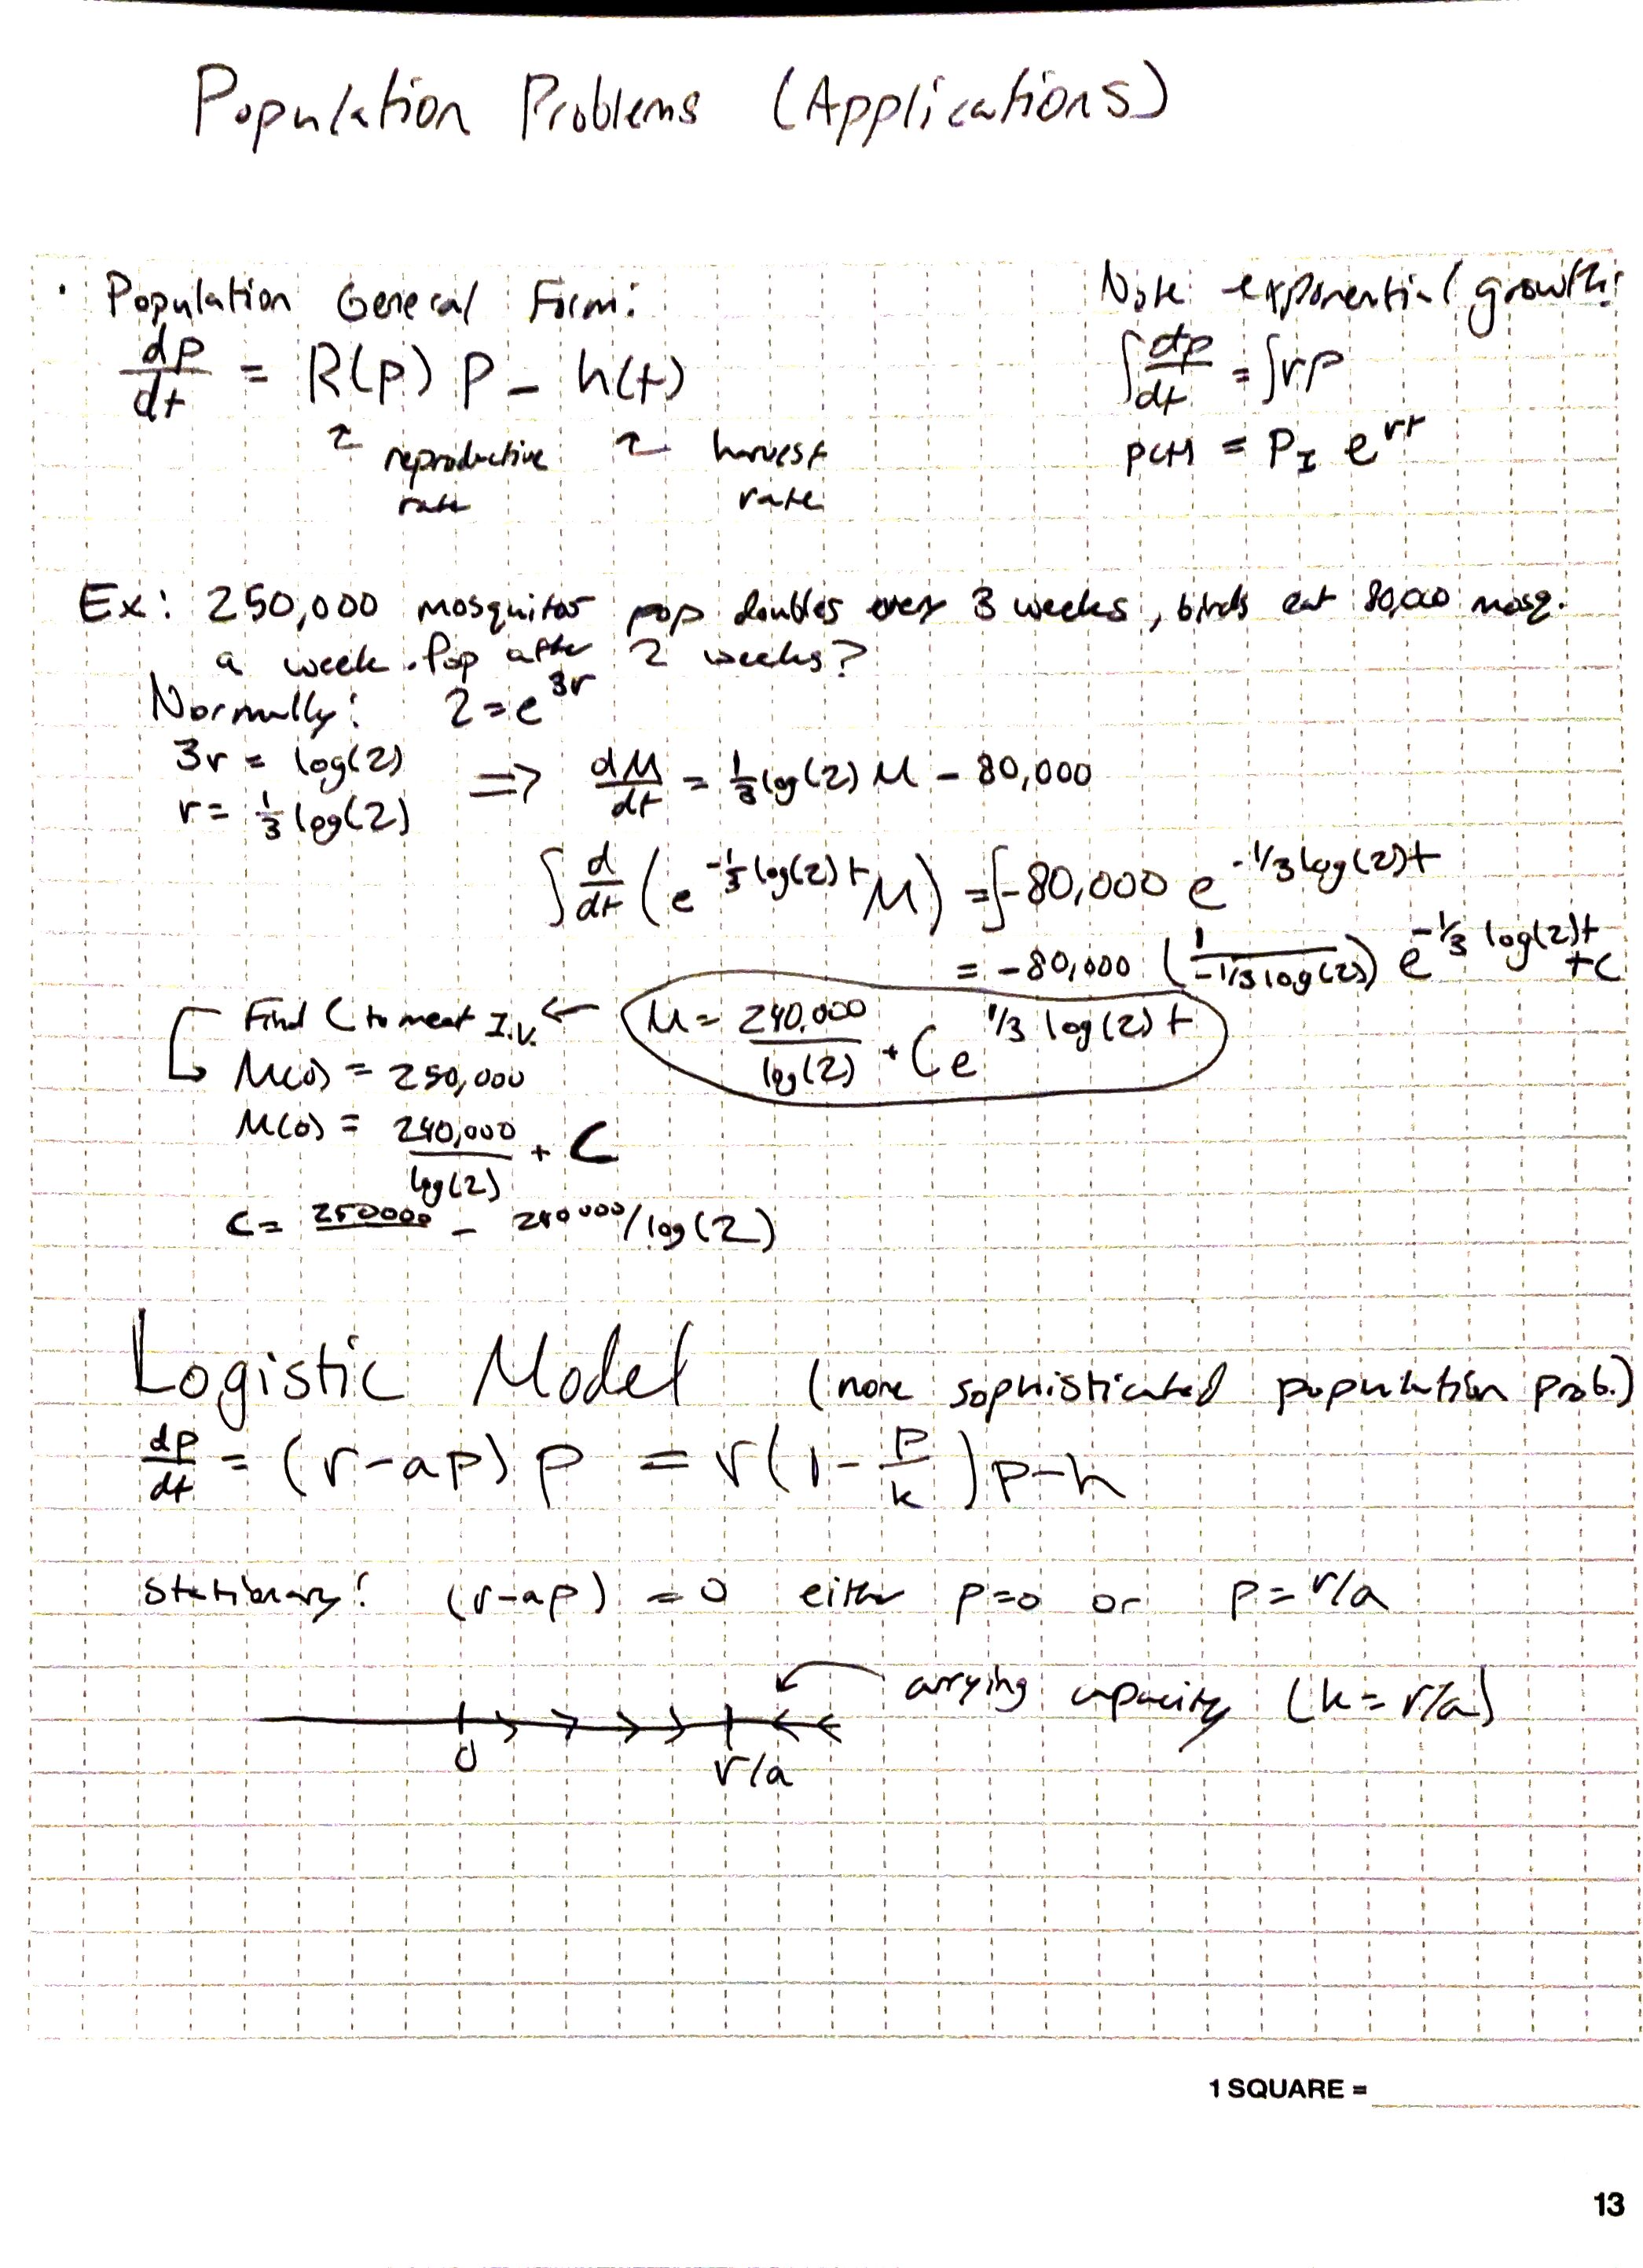 Population Problems (Applications)
· Population General Form:
dp/dt = R(p) p - h(t)
↑ reproductive rate ↑ harvest rate
Note: exponential growth:
∫ dp/dt = ∫ rp
p(t) = P_I e^{rt}
Ex: 250,000 mosquitos pop doubles every 3 weeks, birds eat 80,000 mosq.
a week. Pop after 2 weeks?
Normally: 2 = e^{3r}
3r = log(2)
r = 1/3 log(2)
=> dM/dt = 1/3 log(2) M - 80,000
∫ d/dt (e^{-1/3 log(2) t} M) = ∫ -80,000 e^{-1/3 log(2)t}
= -80,000 (1/(-1/3 log(2))) e^{-1/3 log(2)t} + C
M = 240,000/log(2) + C e^{1/3 log(2) t}
Find C to meet I.V. ←
M(0) = 250,000
M(0) = 240,000/log(2) + C
C = 250000 - 240000/log(2)
Logistic Model (more sophisticated population prob.)
dp/dt = (r-ap) p = r(1 - p/k) p - h
Stationary: (r-ap) = 0 either p=0 or p = r/a
carrying capacity (k = r/a)
0 r/a
1 SQUARE =
13